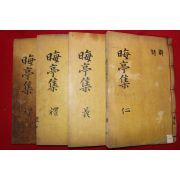 晦亭集 仁
晦亭集 義
晦亭集 禮
晦亭集